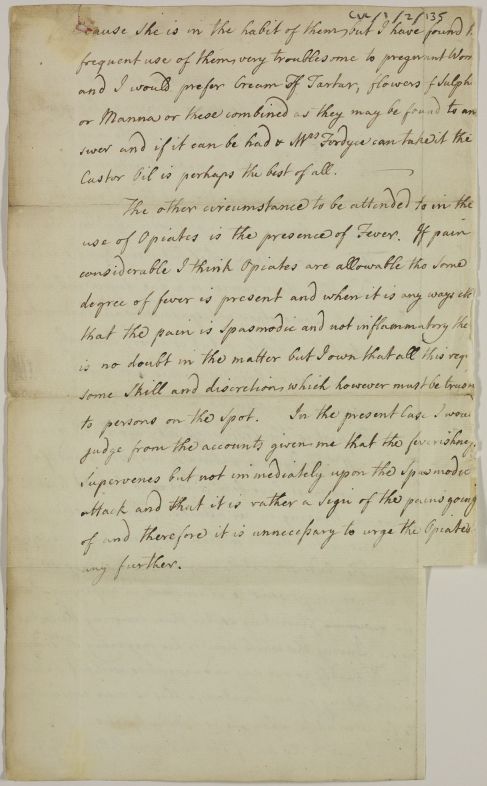 CUL/1/2/135
cause she is in the habit of them, but I have found
frequent use of them very troublesome to pregnant Wom
and I would prefer Cream of Tartar, flowers of Sulph
or Manna or these combined as they may be found to an
swer and if it can be had & Mrs Fordyce can take it the
Castor Oil is perhaps the best of all.
The other circumstance to be attended to in the
use of Opiates is the presence of Fever. If pain
considerable I think Opiates are allowable tho some
degree of fever is present and when it is any ways cle
that the pain is Spasmodic and not inflammatory the
is no doubt in the matter but I own that all this req
some Skill and discretion which however must be trus
to persons on the Spot. In the present Case I wou
judge from the accounts given me that the feverishne
supervenes but not immediately upon the Spasmodic
attack and that it is rather a sign of the pains going
of and therefore it is unnecessary to urge the Opiates
any further.